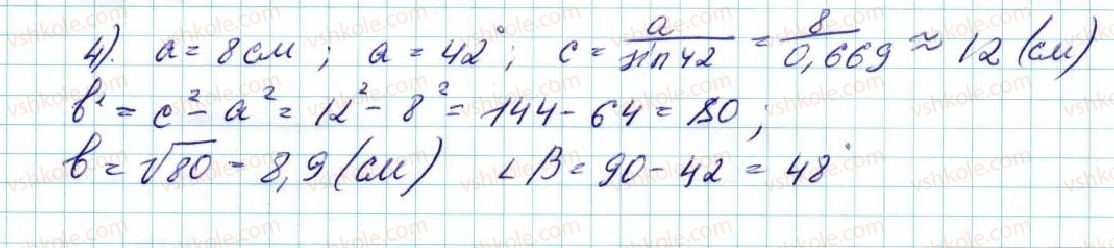 4). a = 8 см ; a = 42°; c = a / sin 42 = 8 / 0,669 ≈ 12 (см)
b² = c² - a² = 12² - 8² = 144 - 64 = 80;
b = √80 = 8,9 (см) ∠B = 90 - 42 = 48°